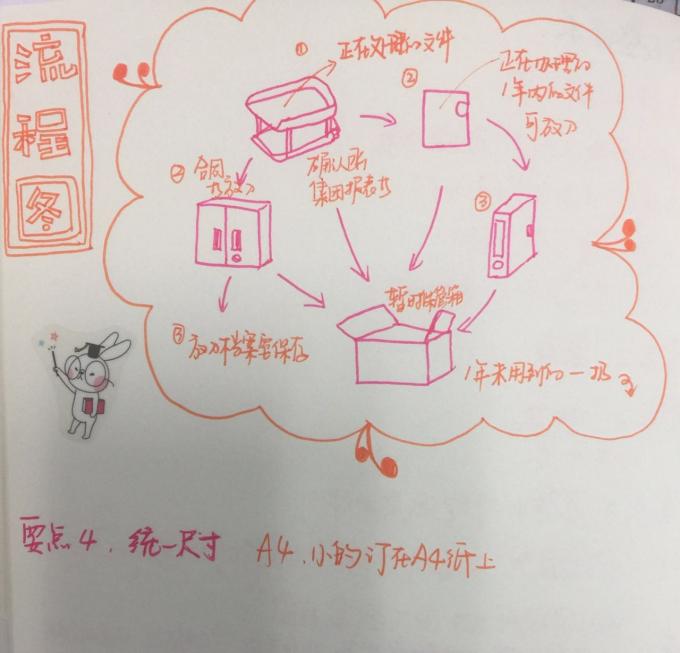 流程图
① 正在处理的文件
② 正在处理的
1年内的文件
可放入
② 合同
书放入
确认所
集团报表书
③
暂时保管箱
③ 放入档案室保存
1年未用到的一扔
要点4、统一尺寸 A4、小的订在A4纸上